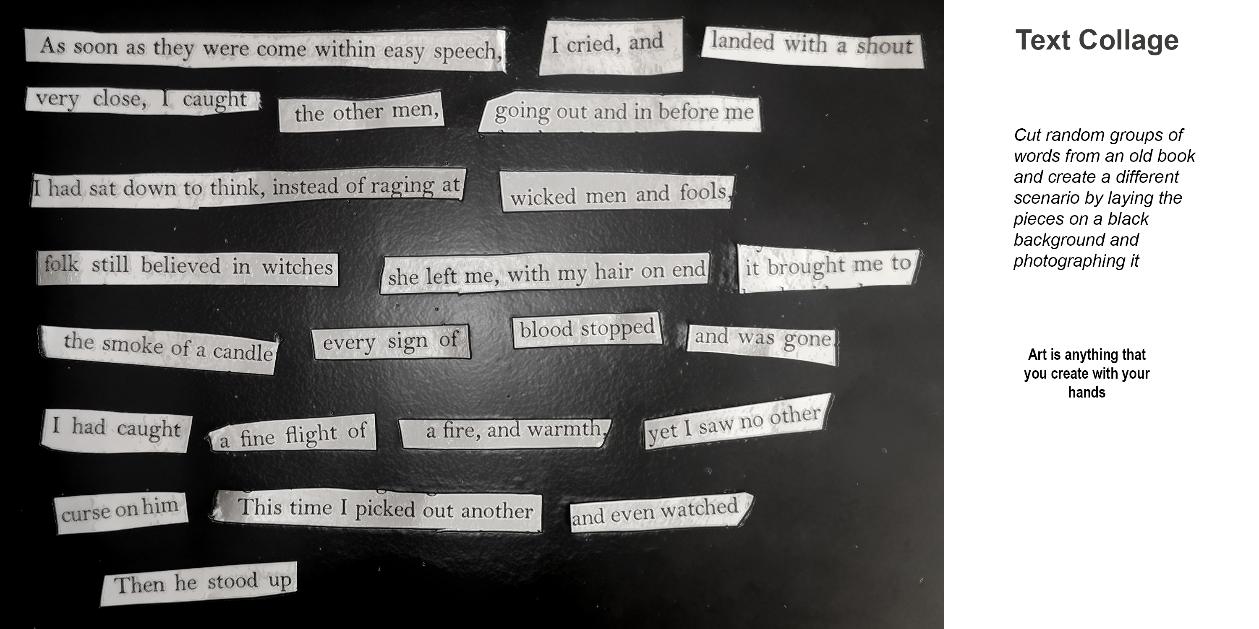 As soon as they were come within easy speech, I cried, and landed with a shout
very close, I caught the other men, going out and in before me
I had sat down to think, instead of raging at wicked men and fools,
folk still believed in witches she left me, with my hair on end it brought me to
the smoke of a candle every sign of blood stopped and was gone
I had caught a fine flight of a fire, and warmth, yet I saw no other
curse on him This time I picked out another and even watched
Then he stood up
Text Collage
Cut random groups of
words from an old book
and create a different
scenario by laying the
pieces on a black
background and
photographing it
Art is anything that
you create with your
hands